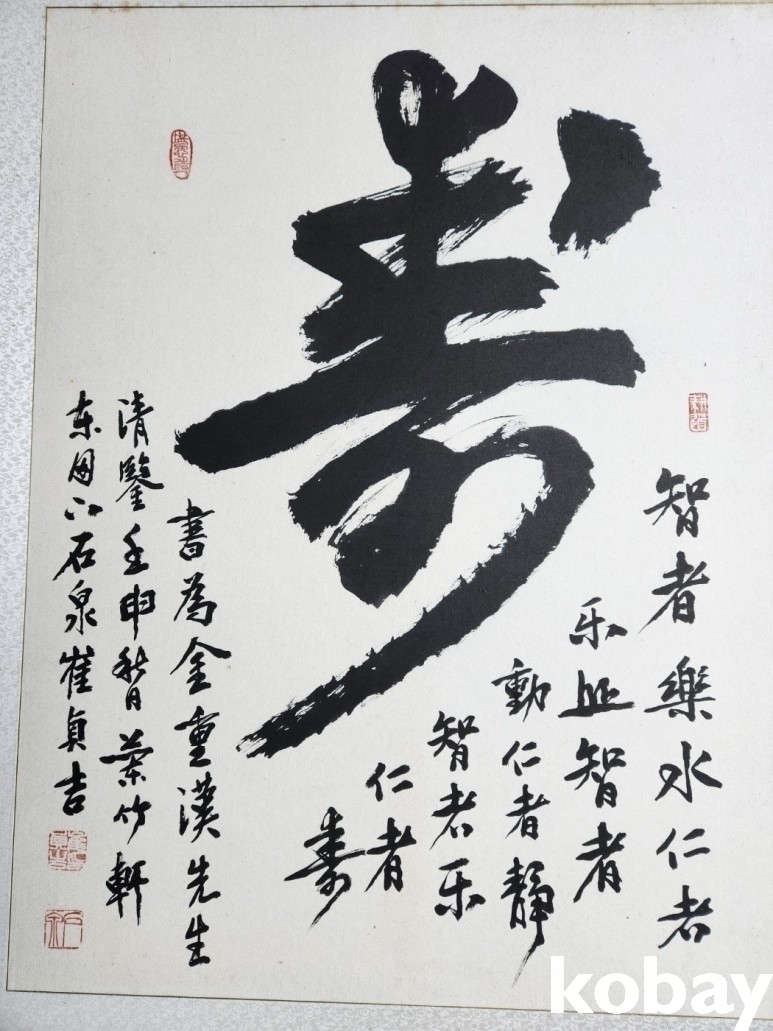 寿
智者樂水仁者
乐山智者
動仁者靜
智者乐
仁者
寿
書為金重漢先生
清鑒壬申竹軒
石泉崔貞吉
kobay